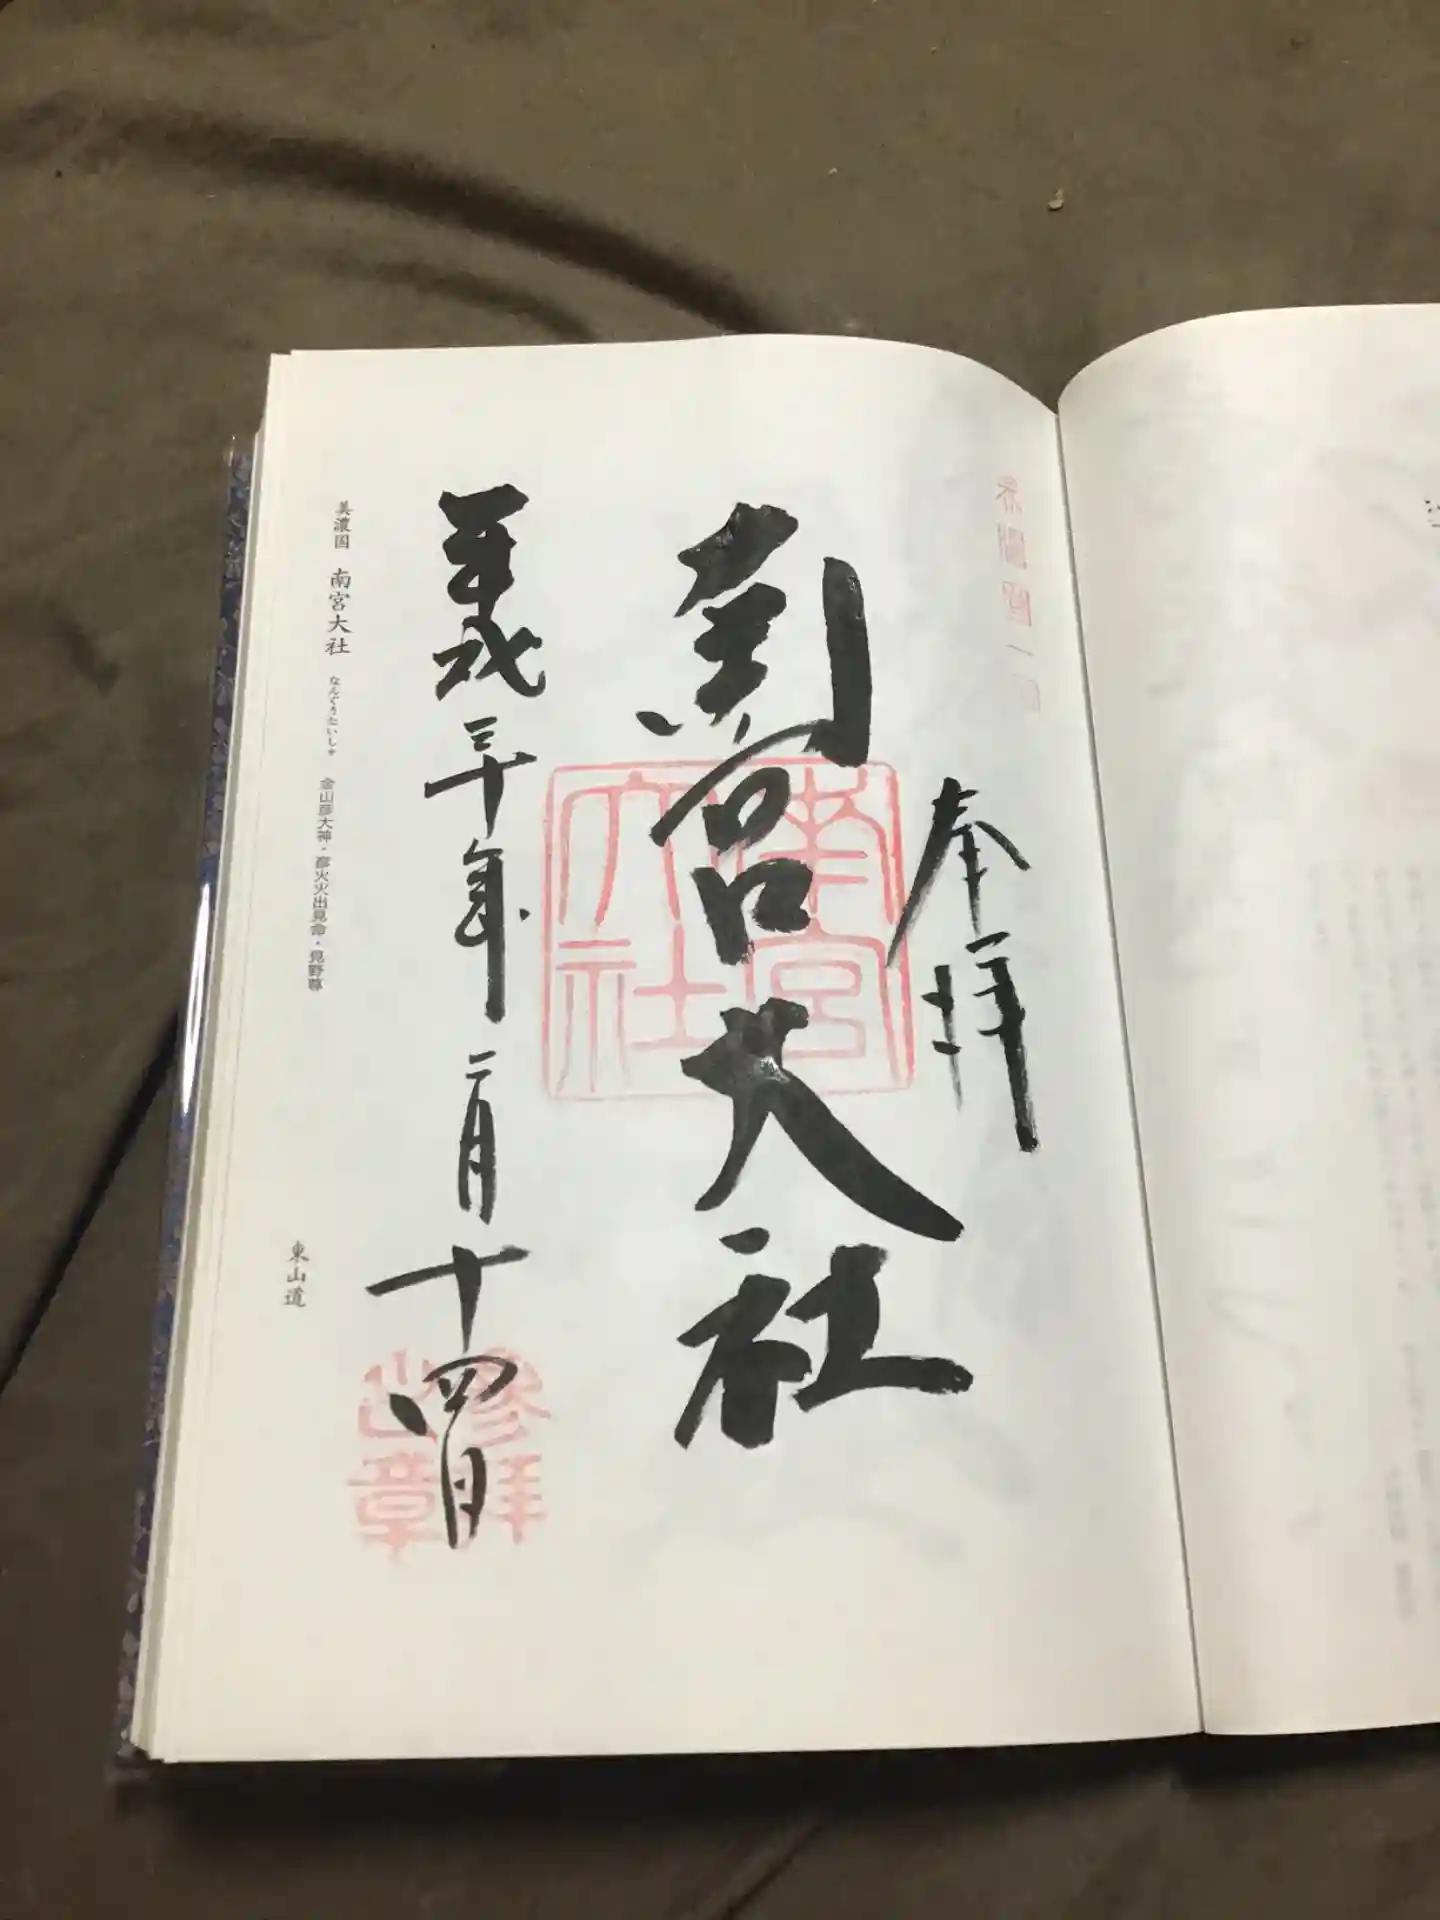 奉拝
南宮大社
南宮大社
平成三十年二月十四日
参拝之章
美濃国 南宮大社 なんぐうたいしゃ 金山彦大神・彦火火出見命・見野尊
東山道